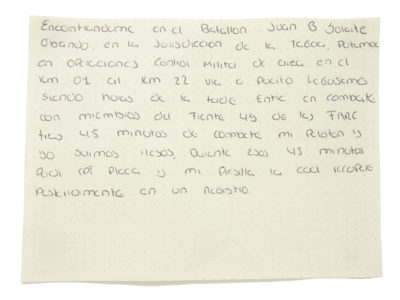 Encontrandome en el Batallon Juan B Solarte
Obando, en la Jurisdiccion de la Tagua, Putumayo
en operaciones Control Militar de area en el
Km 01 al Km 22 via a Puerto Leguisamo
siendo horas de la tarde Entre en combate
con miembros del Frente 49 de las FARC
tras 45 minutos de combate mi Peloton y
yo salimos ilesos, Durante esos 45 minutos
Perdi mi Placa y mi Presilla la cual recupere
Posteriormente en un Registro.